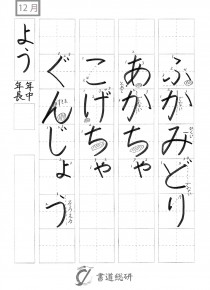 12月
ふかみどり
あかちゃ
こげちゃ
ぐんじょう
よう
年中
年長
書道総研